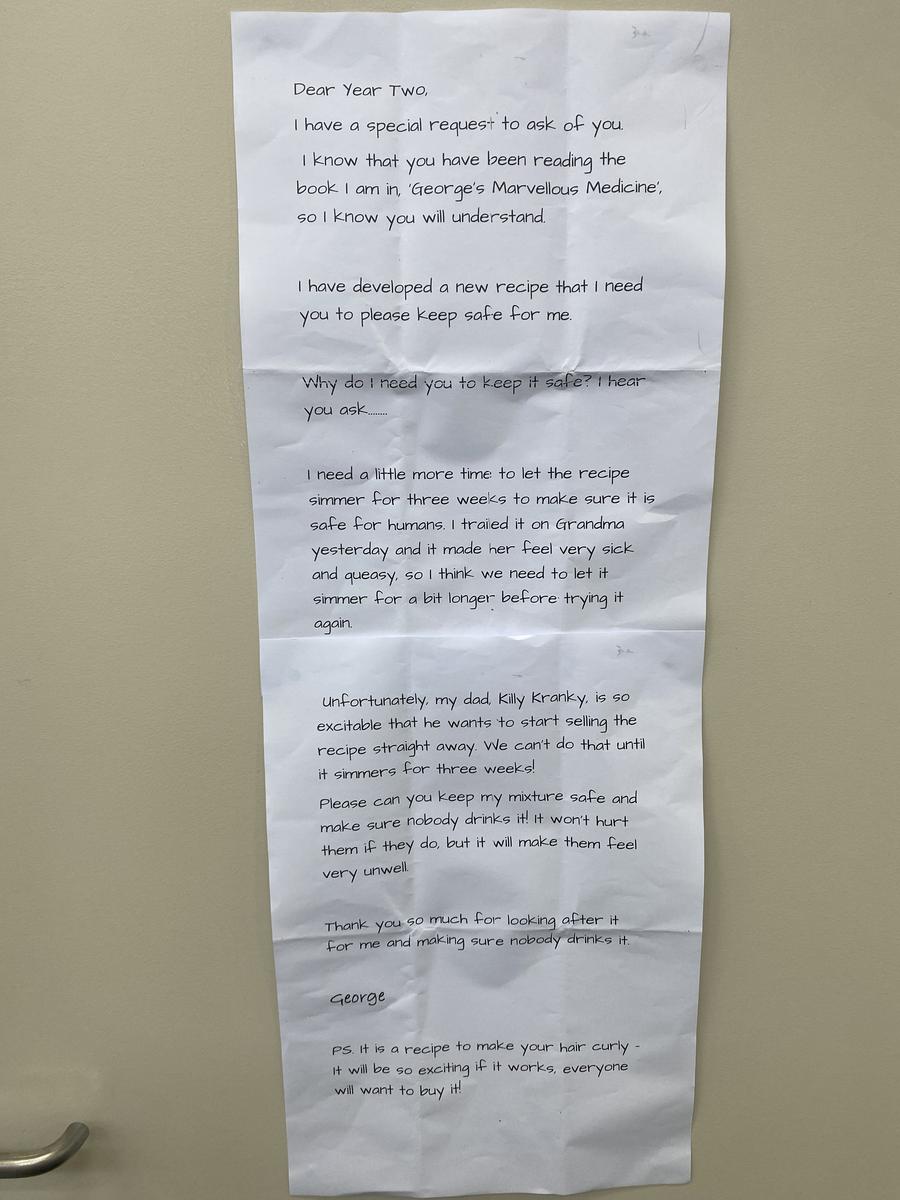 Dear Year Two,
I have a special request to ask of you.
I know that you have been reading the
book I am in, 'George's Marvellous Medicine',
so I know you will understand.
I have developed a new recipe that I need
you to please keep safe for me.
Why do I need you to keep it safe? I hear
you ask........
I need a little more time to let the recipe
simmer for three weeks to make sure it is
safe for humans. I trailed it on Grandma
yesterday and it made her feel very sick
and queasy, so I think we need to let it
simmer for a bit longer before trying it
again.
Unfortunately, my dad, Killy Kranky, is so
excitable that he wants to start selling the
recipe straight away. We can't do that until
it simmers for three weeks!
Please can you keep my mixture safe and
make sure nobody drinks it! It won't hurt
them if they do, but it will make them feel
very unwell.
Thank you so much for looking after it
for me and making sure nobody drinks it.
George
PS. It is a recipe to make your hair curly -
It will be so exciting if it works, everyone
will want to buy it!